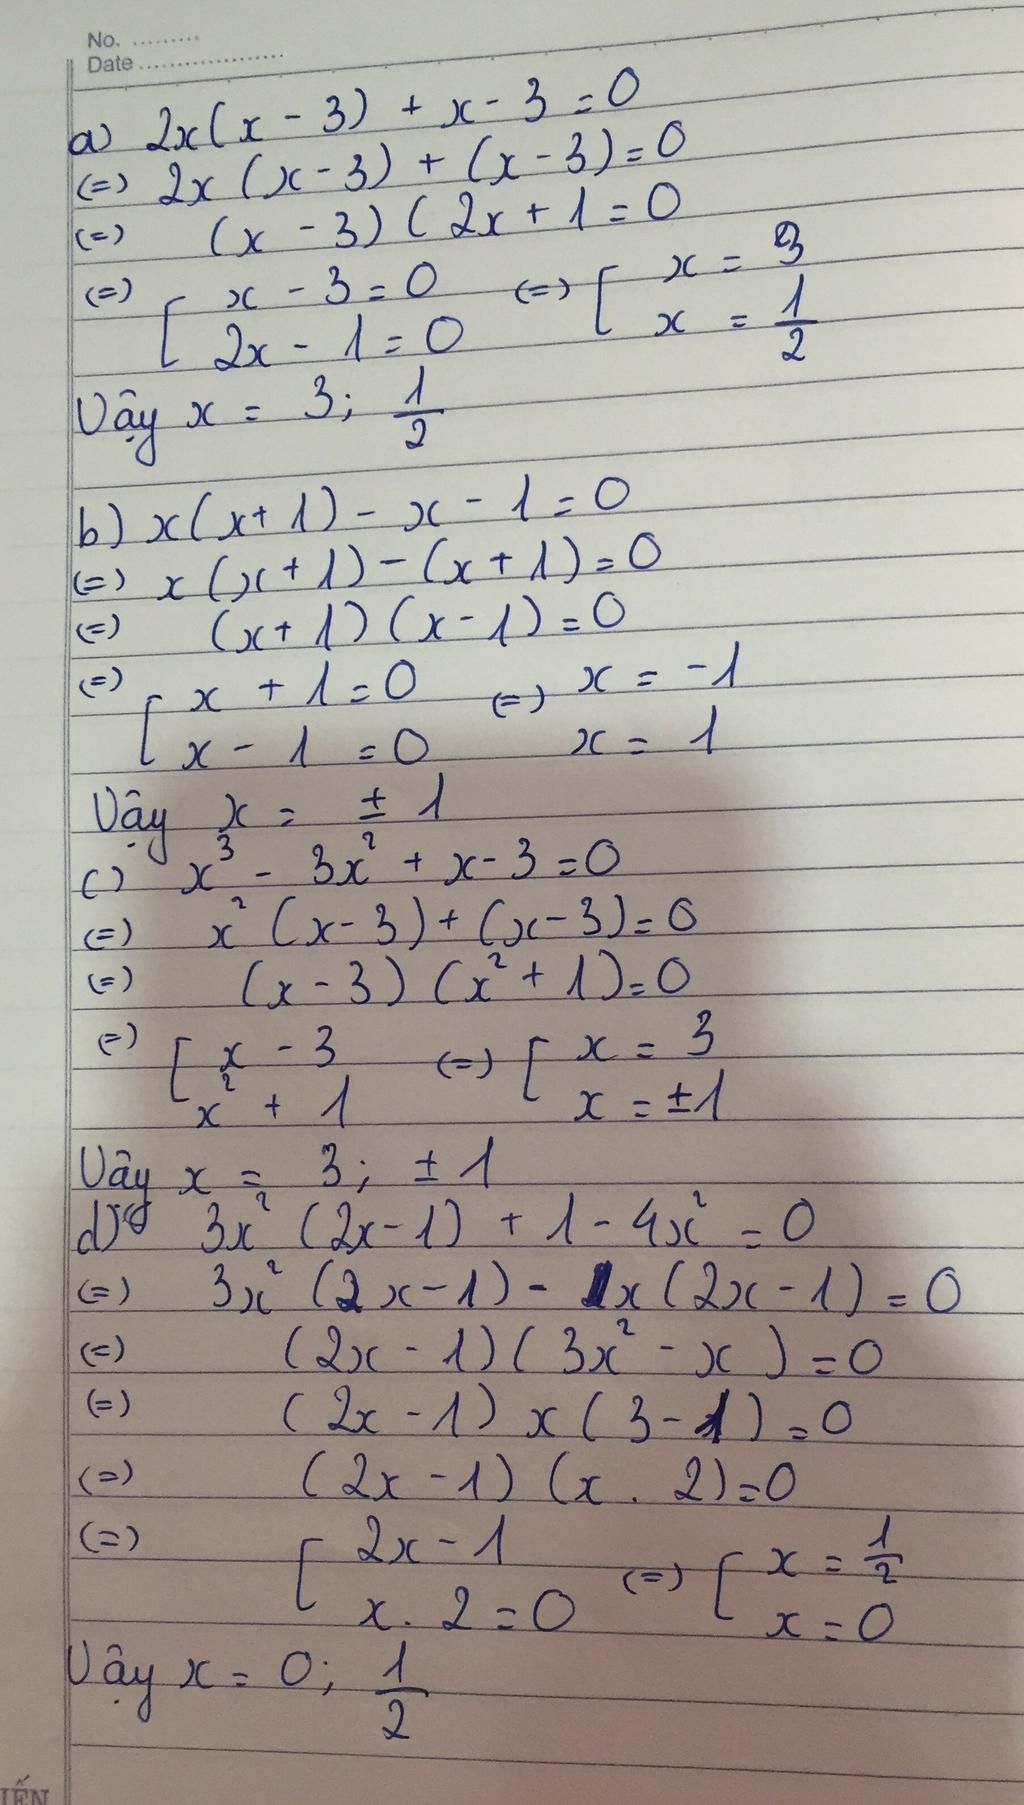 No. .........
Date ..................
a) 2x(x - 3) + x - 3 = 0
(=) 2x (x - 3) + (x - 3) = 0
(=) (x - 3) ( 2x + 1 = 0
(=) [ x - 3 = 0 (=) [ x = 3
2x - 1 = 0 x = 1/2
Vậy x = 3; 1/2
b) x(x + 1) - x - 1 = 0
(=) x (x + 1) - (x + 1) = 0
(=) (x + 1) (x - 1) = 0
(=) [ x + 1 = 0 (=) x = -1
x - 1 = 0 x = 1
Vậy x = ± 1
c) x³ - 3x² + x - 3 = 0
(=) x² (x - 3) + (x - 3) = 0
(=) (x - 3) (x² + 1) = 0
(=) [ x - 3 (=) [ x = 3
x² + 1 x = ±1
Vây x = 3; ± 1
d) 3x² (2x - 1) + 1 - 4x² = 0
(=) 3x² (2x - 1) - 1x (2x - 1) = 0
(=) (2x - 1) (3x² - x) = 0
(=) (2x - 1) x (3 - 1) = 0
(=) (2x - 1) (x . 2) = 0
(=) [ 2x - 1 (=) [ x = 1/2
x . 2 = 0 x = 0
Vậy x = 0; 1/2
IẾN